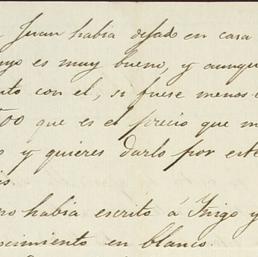 Juan habia dejado en casa
es muy bueno, y aunque
con el, si fuese menos
00 que es el precio que m
y quieres darlo por este
no habia escrito á Iñigo y
ocimiento en blanco.